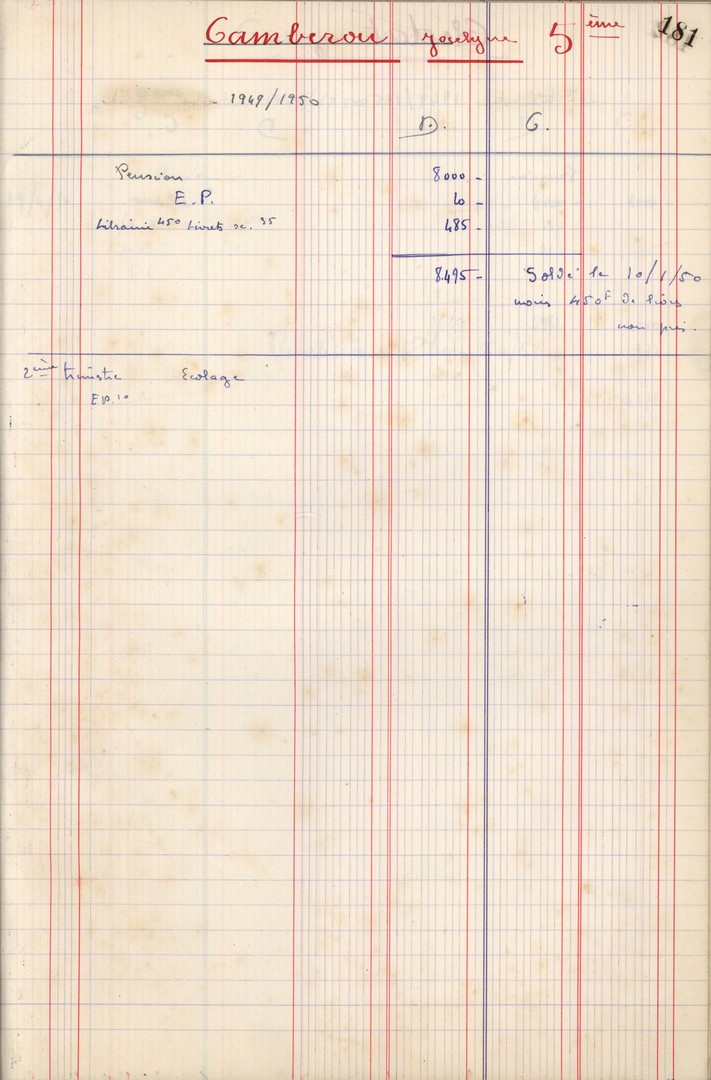 Camberou Jocelyne 5ème 181
1949/1950
D. C.
Pension 8000 -
E.P. 10 -
Librairie 450 Livrets sc. 35 485 -
8.495 - Soldé le 10/1/50
moins 450F de livres
non pris.
2ème trimestre Ecolage
E.P. 10